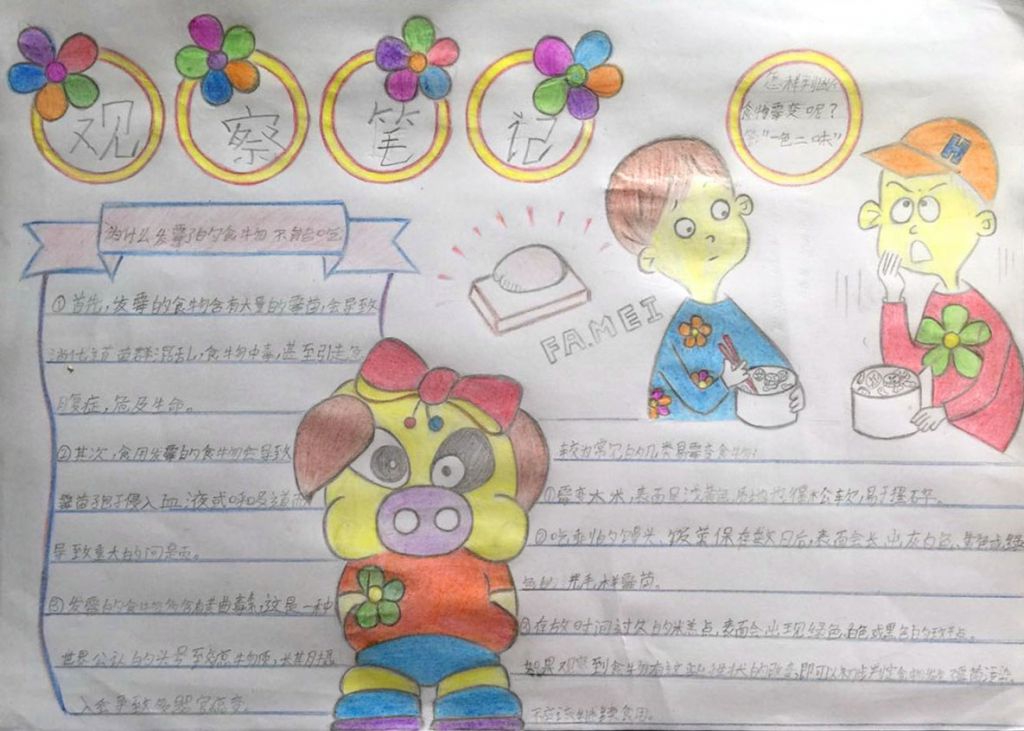 观察笔记
怎样判断
食物霉变呢?
答"一色二味"
为什么发霉了的食物不能吃
FA.MEI
H
①首先,发霉的食物含有大量的霉菌,会导致
消化道菌群混乱,食物中毒,甚至引起
腹症,危及生命。
②其次,食用发霉的食物会导致
霉菌孢子侵入血液或呼吸道而
导致重大的问题。
③发霉的食物含有毒素,这是一种
世界公认的头号致癌物质,长期
入会导致器官
较为常见的几类易霉变食物:
①霉变大米,表面呈浅黄色,质地也很松软,易于
②吃剩的馒头、饭菜保存数日后,表面会长出灰白色、
色的,羌毛样霉菌。
③存放时间过久的米 点,表面会出现绿色、 色或黑色的
如果观察到食物有这 状的改变,即可
不应该继续食用。